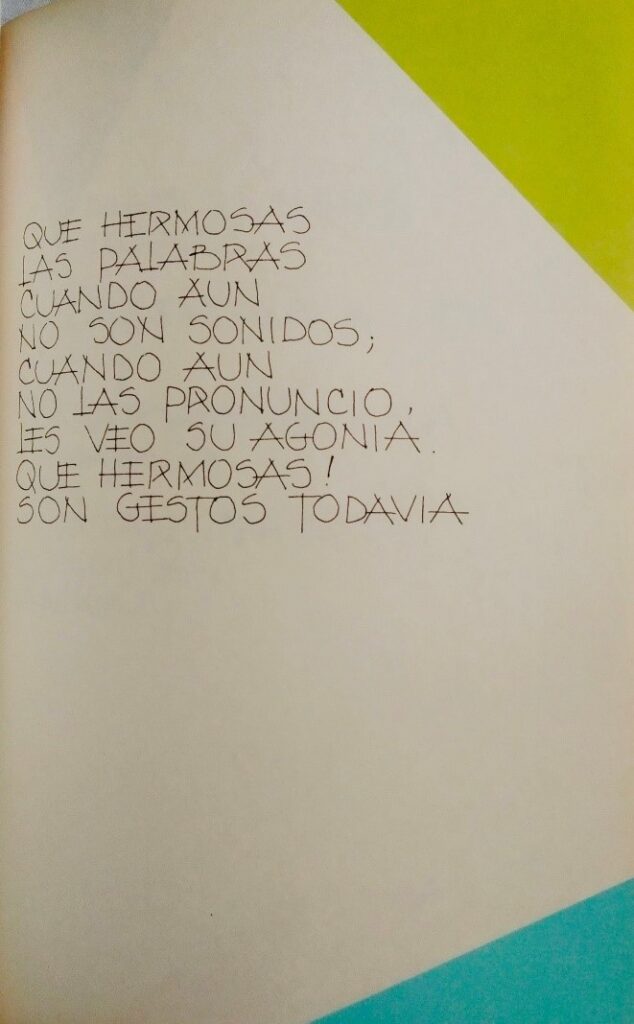 QUE HERMOSAS
LAS PALABRAS
CUANDO AUN
NO SON SONIDOS;
CUANDO AUN
NO LAS PRONUNCIO,
LES VEO SU AGONIA.
QUE HERMOSAS!
SON GESTOS TODAVIA